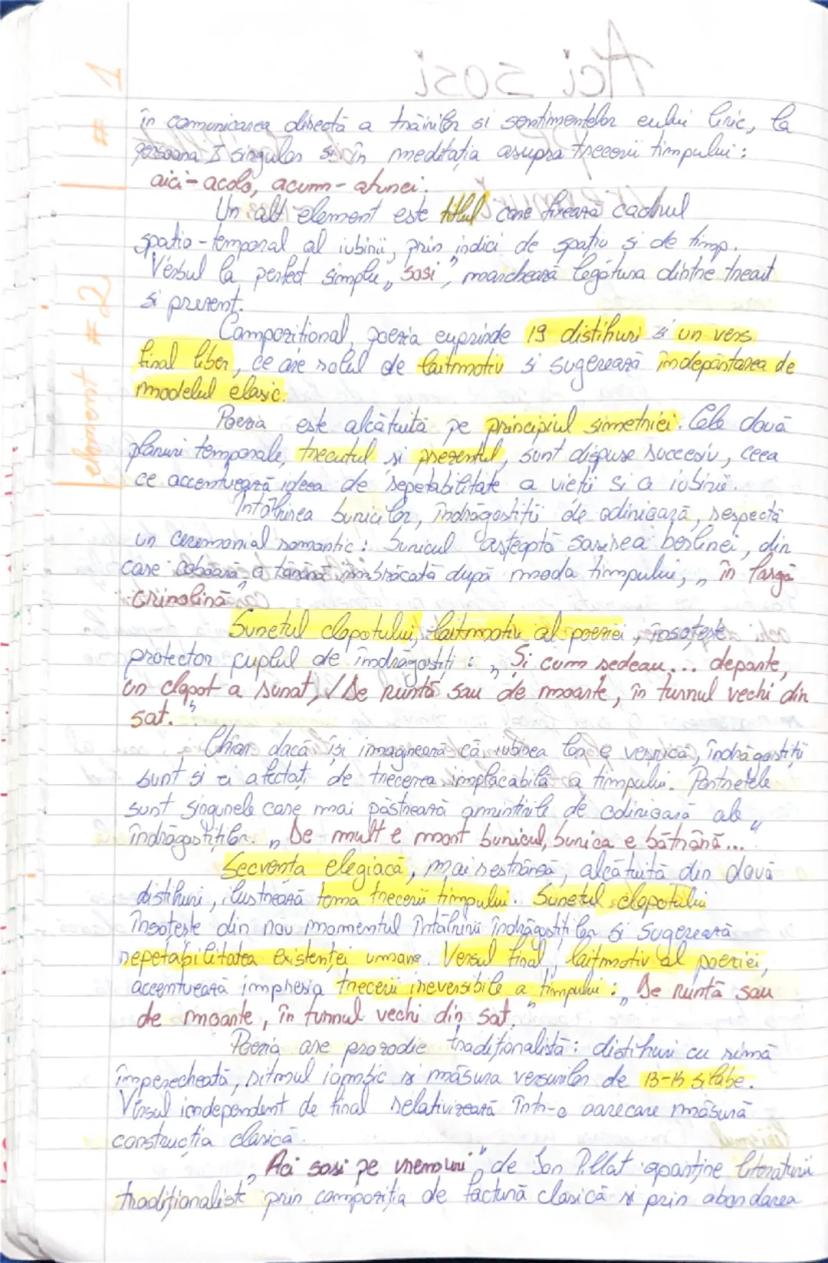 Aci sosi
# 1
element # 2
în comunicarea directă a trăirilor si sentimentelor eului liric, la
persoana I singular si în meditația asupra trecerii timpului:
aici-acolo, acum-atunci.
Un alt element este titlul care fixează cadrul
spatio-temporal al iubirii, prin indici de spațiu si de timp.
Verbul la perfect simplu „sosi", marchează legătura dintre trecut
si prezent.
Compozitional, poezia cuprinde 19 distihuri si un vers
final liber, ce are rolul de laitmotiv si sugerează îndepărtarea de
modelul clasic.
Poezia este alcătuită pe principiul simetriei. Cele două
planuri temporale, trecutul si prezentul, sunt dispuse succesiv, ceea
ce accentuează ideea de repetabilitate a vieții si a iubirii.
Întâlnirea bunicilor, îndrăgostiții de odinioară, respectă
un ceremonial romantic: bunicul așteaptă sosirea berlinei, din
care coboară o tânără îmbrăcată după moda timpului, „în largă
crinolină"
Sunetul clopotului, laitmotiv al poeziei, însoțește
protector cuplul de îndrăgostiti: „Și cum sedeau... departe,
un clopot a sunat, / De nuntă sau de moarte, în turnul vechi din
sat."
Chiar dacă își imaginează că iubirea lor e vesnică, îndrăgostiții
sunt si ei afectați de trecerea implacabilă a timpului. Portretele
sunt singurele care mai păstrează amintirile de odinioară ale
îndrăgostiților. „De mult e mort bunicul, bunica e bătrână..."
Secventa elegiacă, mai restrânsă, alcătuită din două
distihuri, ilustrează tema trecerii timpului. Sunetul clopotului
însoțește din nou momentul întâlnirii îndrăgostiților si sugerează
repetabilitatea existenței umane. Versul final, laitmotiv al poeziei,
accentuează impresia trecerii ireversibile a timpului: „De nuntă sau
de moarte, în turnul vechi din sat."
Poezia are prozodie tradiționalistă: distihuri cu rimă
împerecheată, ritmul iambic si măsura versurilor de 13-15 silabe.
Versul independent de final relativizează într-o oarecare măsură
constructia clasică.
„Aci sosi pe vremuri", de Ion Pillat aparține literaturii
tradiționaliste prin compoziția de factură clasică si prin abordarea